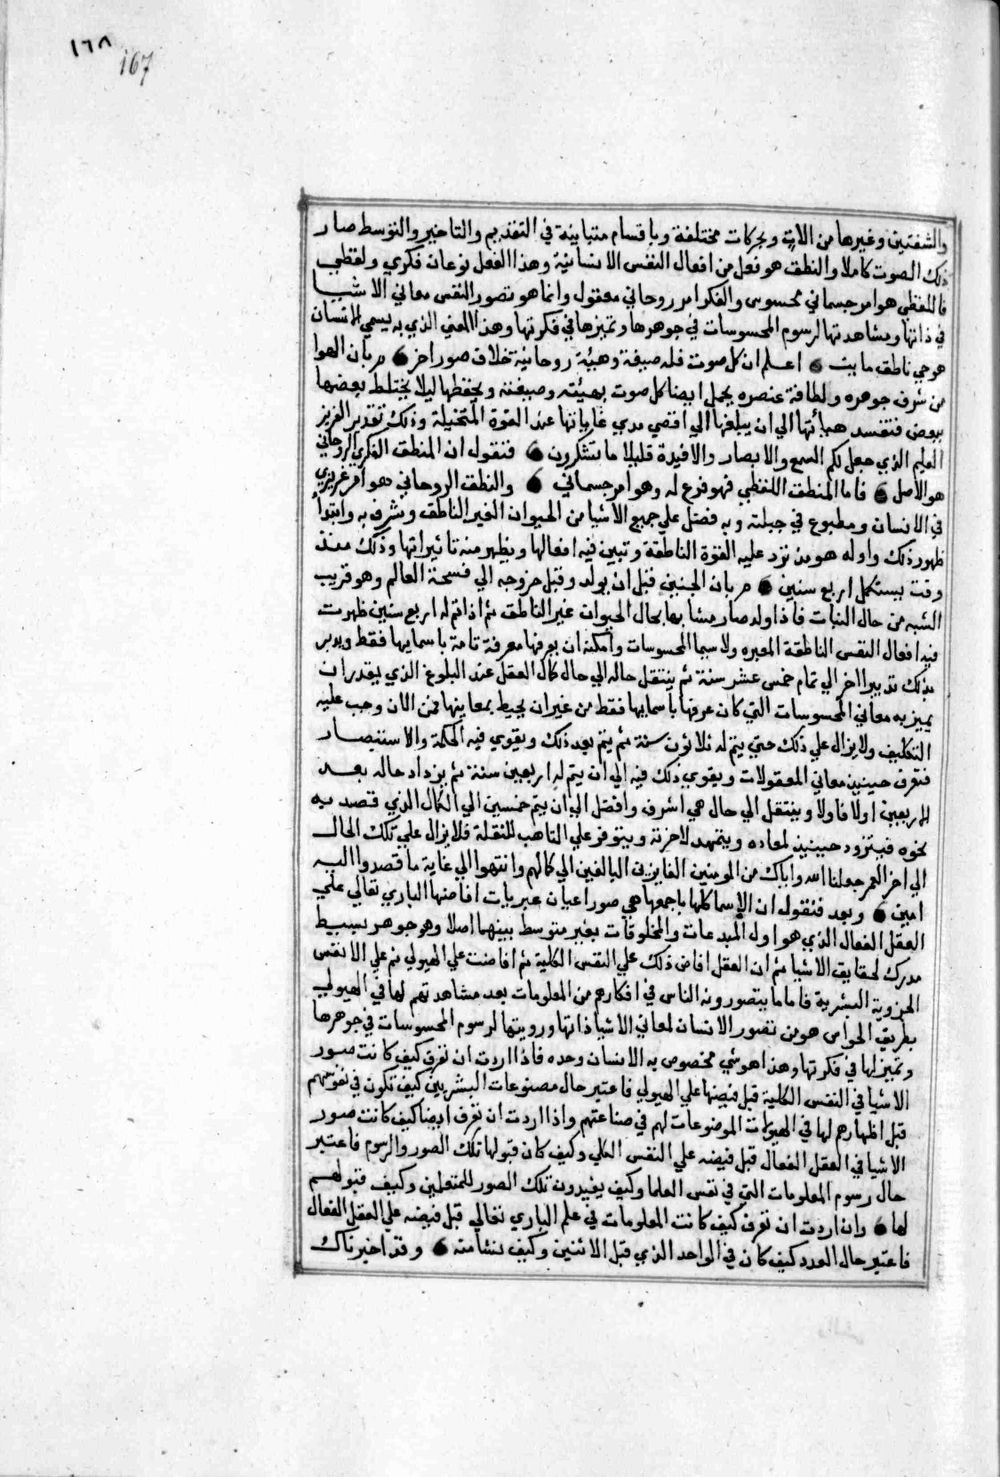 ١٦٨
167
والشفتين وغيرها من الالات وبحركات مختلفة وباقسام متباينة في التقديم والتاخير والتوسط صار
ذلك الصوت كاملا والنطق هو فعل من افعال النفس الانسانية وهذا الفعل نوعان فكري ولفظي
فاللفظي هو امر جسماني محسوس والفكر امر روحاني معقول وانما هو تصور النفس معاني الاشيا
في ذاتها ومشاهدتها لرسوم المحسوسات في جوهرها وتميزها في فكرتها وهذا المعني الذي به يسمي الانسان
هو حي ناطق مايت اعلم ان كل صوت فله صيغة وهيئة روحانية خلاف صور اخر مر بان الهوا
من شرف جوهره ولطافة عنصره يحمل ايضا كل صوت بهيئته وصيغته ويحفظها ليلا يختلط بعضها
ببعض فتفسد هيأتها الي ان يبلغها الي اقصي مدي غاياتها عند القوة المتخيلة وذلك تقدير العزيز
العليم الذي جعل لكم السمع والابصار والافيدة قليلا ما تشكرون فنقول ان المنطق الفكري الروحاني
هو الاصل فاما المنطق اللفظي فهو فرع له وهو امر جسماني والنطق الروحاني هو امر غريزي
في الانسان ومطبوع في جبلته وبه فضل علي جميع الاشيا من الحيوان الغير الناطق وشرف به وابتدأ
ظهور ذلك واوله هو من ترد عليه القوة الناطقة وتبين فيه افعالها ويظهر منه تاثيراتها وذلك منذ
وقت يستكمل اربع سنين مر بان الجنين قبل ان يولد وقبل خروجه الي فسحة العالم وهو قريب
الشبه من حال النبات فاذا ولد صار مشابها بحال الحيوان غير الناطق ثم اذا تم له اربع سنين ظهرت
فيه افعال النفس الناطقة المعبره ولا سيما المحسوسات وامكنه ان يعرفها معرفة تامة باسمايها فقط ويدبر
بذلك تدبيرا اخر الي تمام خمس عشر سنة ثم ينتقل حاله الي حال كمال العقل عند البلوغ الذي يقدر ان
يميز به معاني المحسوسات التي كان عرفها باسمايها فقط من غير ان يحيط بمعاينها فمن الان وجب عليه
التكليف ولا يزال علي ذلك حتي يتم له ثلاثون سنة ثم يتم بعد ذلك ويقوي فيه الحكمة والاستبصار
فتعرف حينين معاني المعقولات ويقوي ذلك فيه الي ان يتم له اربعين سنة ثم يزداد حاله بعد
الاربعين اولا فاولا وينتقل الي حال هي اشرف وافضل الي ان يتم خمسين الي الكمال الذي قصد به
نحوه فيتزود حينين لمعاده ويتمهد لاخرته ويتوفر علي التاهب للنقلة فلا يزال علي تلك الحال
الي اخر العمر جعلنا الله واياك من المومنين الفايزين البالغين الي كمالهم وانتهوا الي غاية ما قصدوا اليه
امين وبعد فنقول ان الاسما كلها باجمعها هي صور اعيان غيريات افاضها الباري تعالي علي
العقل الفعال الذي هو اول المبدعات والمخلوقات بغير متوسط بينهما اصلا وهو جوهر بسيط
مدرك لحقايق الاشيا ثم ان العقل افاض ذلك علي النفس الكلية ثم افاضت علي الهيولي ثم علي الانفس
الجزوية البشرية فاما ما يتصورونه الناس في افكارهم من المعلومات بعد مشاهدتهم لها في الهيولي
بطريق الحواس هو من تصور الانسان لمعاني الاشيا ذاتها ورويتها لرسوم المحسوسات في جوهرها
وتميزلها في فكرتها وهذا هو شي مخصوص به الانسان وحده فاذا اردت ان تعرف كيف كانت صور
الاشيا في النفس الكلية قبل فيضها علي الهيولي فاعتبر حال مصنوعات البشريين كيف تكون في نفوسهم
قبل اظهارهم لها في الهيولات الموضوعات لهم في صناعتهم واذا اردت ان تعرف ايضا كيف كانت صور
الاشيا في العقل الفعال قبل فيضه علي النفس الكلي وكيف كان قبولها تلك الصور والرسوم فاعتبر
حال رسوم المعلومات التي في نفس العلما وكيف يفيدون تلك الصور للمتعلمين وكيف قبولهم
لها وان اردت ان تعرف كيف كانت المعلومات في علم الباري تعالي قبل فيضه علي العقل الفعال
فاعتبر حال العدد كيف كان في الواحد الذي قبل الاثنين وكيف نشا منه وقد اخبرناك